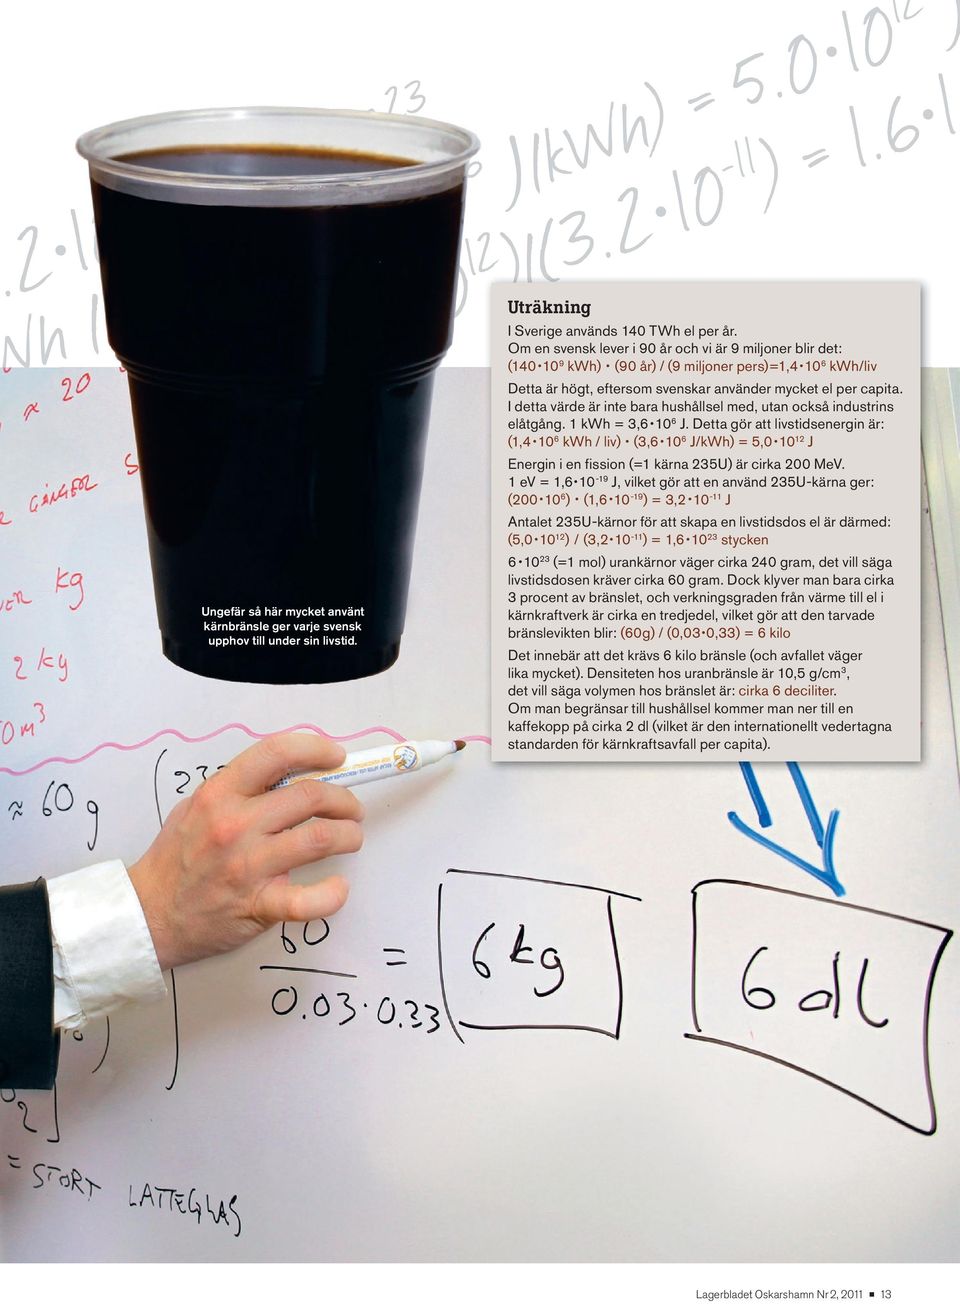 23
J/kWh) = 5.0·10¹²
)/(3.2·10⁻¹¹) = 1.6·1
.2·1
Wh
Uträkning
I Sverige används 140 TWh el per år.
Om en svensk lever i 90 år och vi är 9 miljoner blir det:
(140•10⁹ kWh) • (90 år) / (9 miljoner pers)=1,4•10⁶ kWh/liv
Detta är högt, eftersom svenskar använder mycket el per capita.
I detta värde är inte bara hushållsel med, utan också industrins
elåtgång. 1 kWh = 3,6•10⁶ J. Detta gör att livstidsenergin är:
(1,4•10⁶ kWh / liv) • (3,6•10⁶ J/kWh) = 5,0•10¹² J
Energin i en fission (=1 kärna 235U) är cirka 200 MeV.
1 eV = 1,6•10⁻¹⁹ J, vilket gör att en använd 235U-kärna ger:
(200•10⁶) • (1,6•10⁻¹⁹) = 3,2•10⁻¹¹ J
Antalet 235U-kärnor för att skapa en livstidsdos el är därmed:
(5,0•10¹²) / (3,2•10⁻¹¹) = 1,6•10²³ stycken
6•10²³ (=1 mol) urankärnor väger cirka 240 gram, det vill säga
livstidsdosen kräver cirka 60 gram. Dock klyver man bara cirka
3 procent av bränslet, och verkningsgraden från värme till el i
kärnkraftverk är cirka en tredjedel, vilket gör att den tarvade
bränslevikten blir: (60g) / (0,03•0,33) = 6 kilo
Det innebär att det krävs 6 kilo bränsle (och avfallet väger
lika mycket). Densiteten hos uranbränsle är 10,5 g/cm³,
det vill säga volymen hos bränslet är: cirka 6 deciliter.
Om man begränsar till hushållsel kommer man ner till en
kaffekopp på cirka 2 dl (vilket är den internationellt vedertagna
standarden för kärnkraftsavfall per capita).
≈ 20
GÅNGER S
kg
2 kg
0m³
Ungefär så här mycket använt
kärnbränsle ger varje svensk
upphov till under sin livstid.
≈ 60 g
60
0.03·0.33
= 6 kg
6 dl
= STORT LATTEGLAS
Lagerbladet Oskarshamn Nr 2, 2011 ■ 13